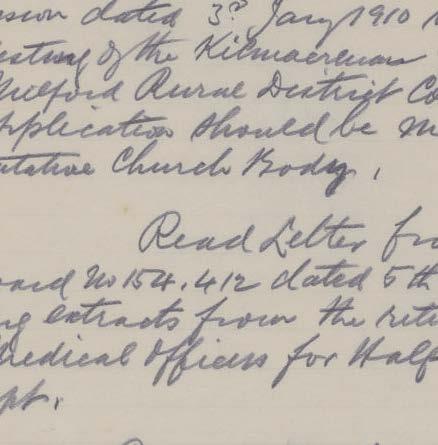 ssion dated 3rd Jany 1910
esting of the Kilmacrenan
Milford Rural District Co
pplication should be m
ntative Church Body,
Read Letter fro
oard No 154.412 dated 5th
ng extracts from the retu
Medical Officers for Half
pt.